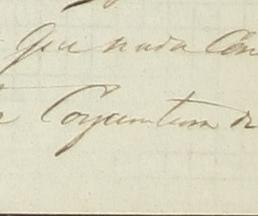 que nada Con
Conjuntura de